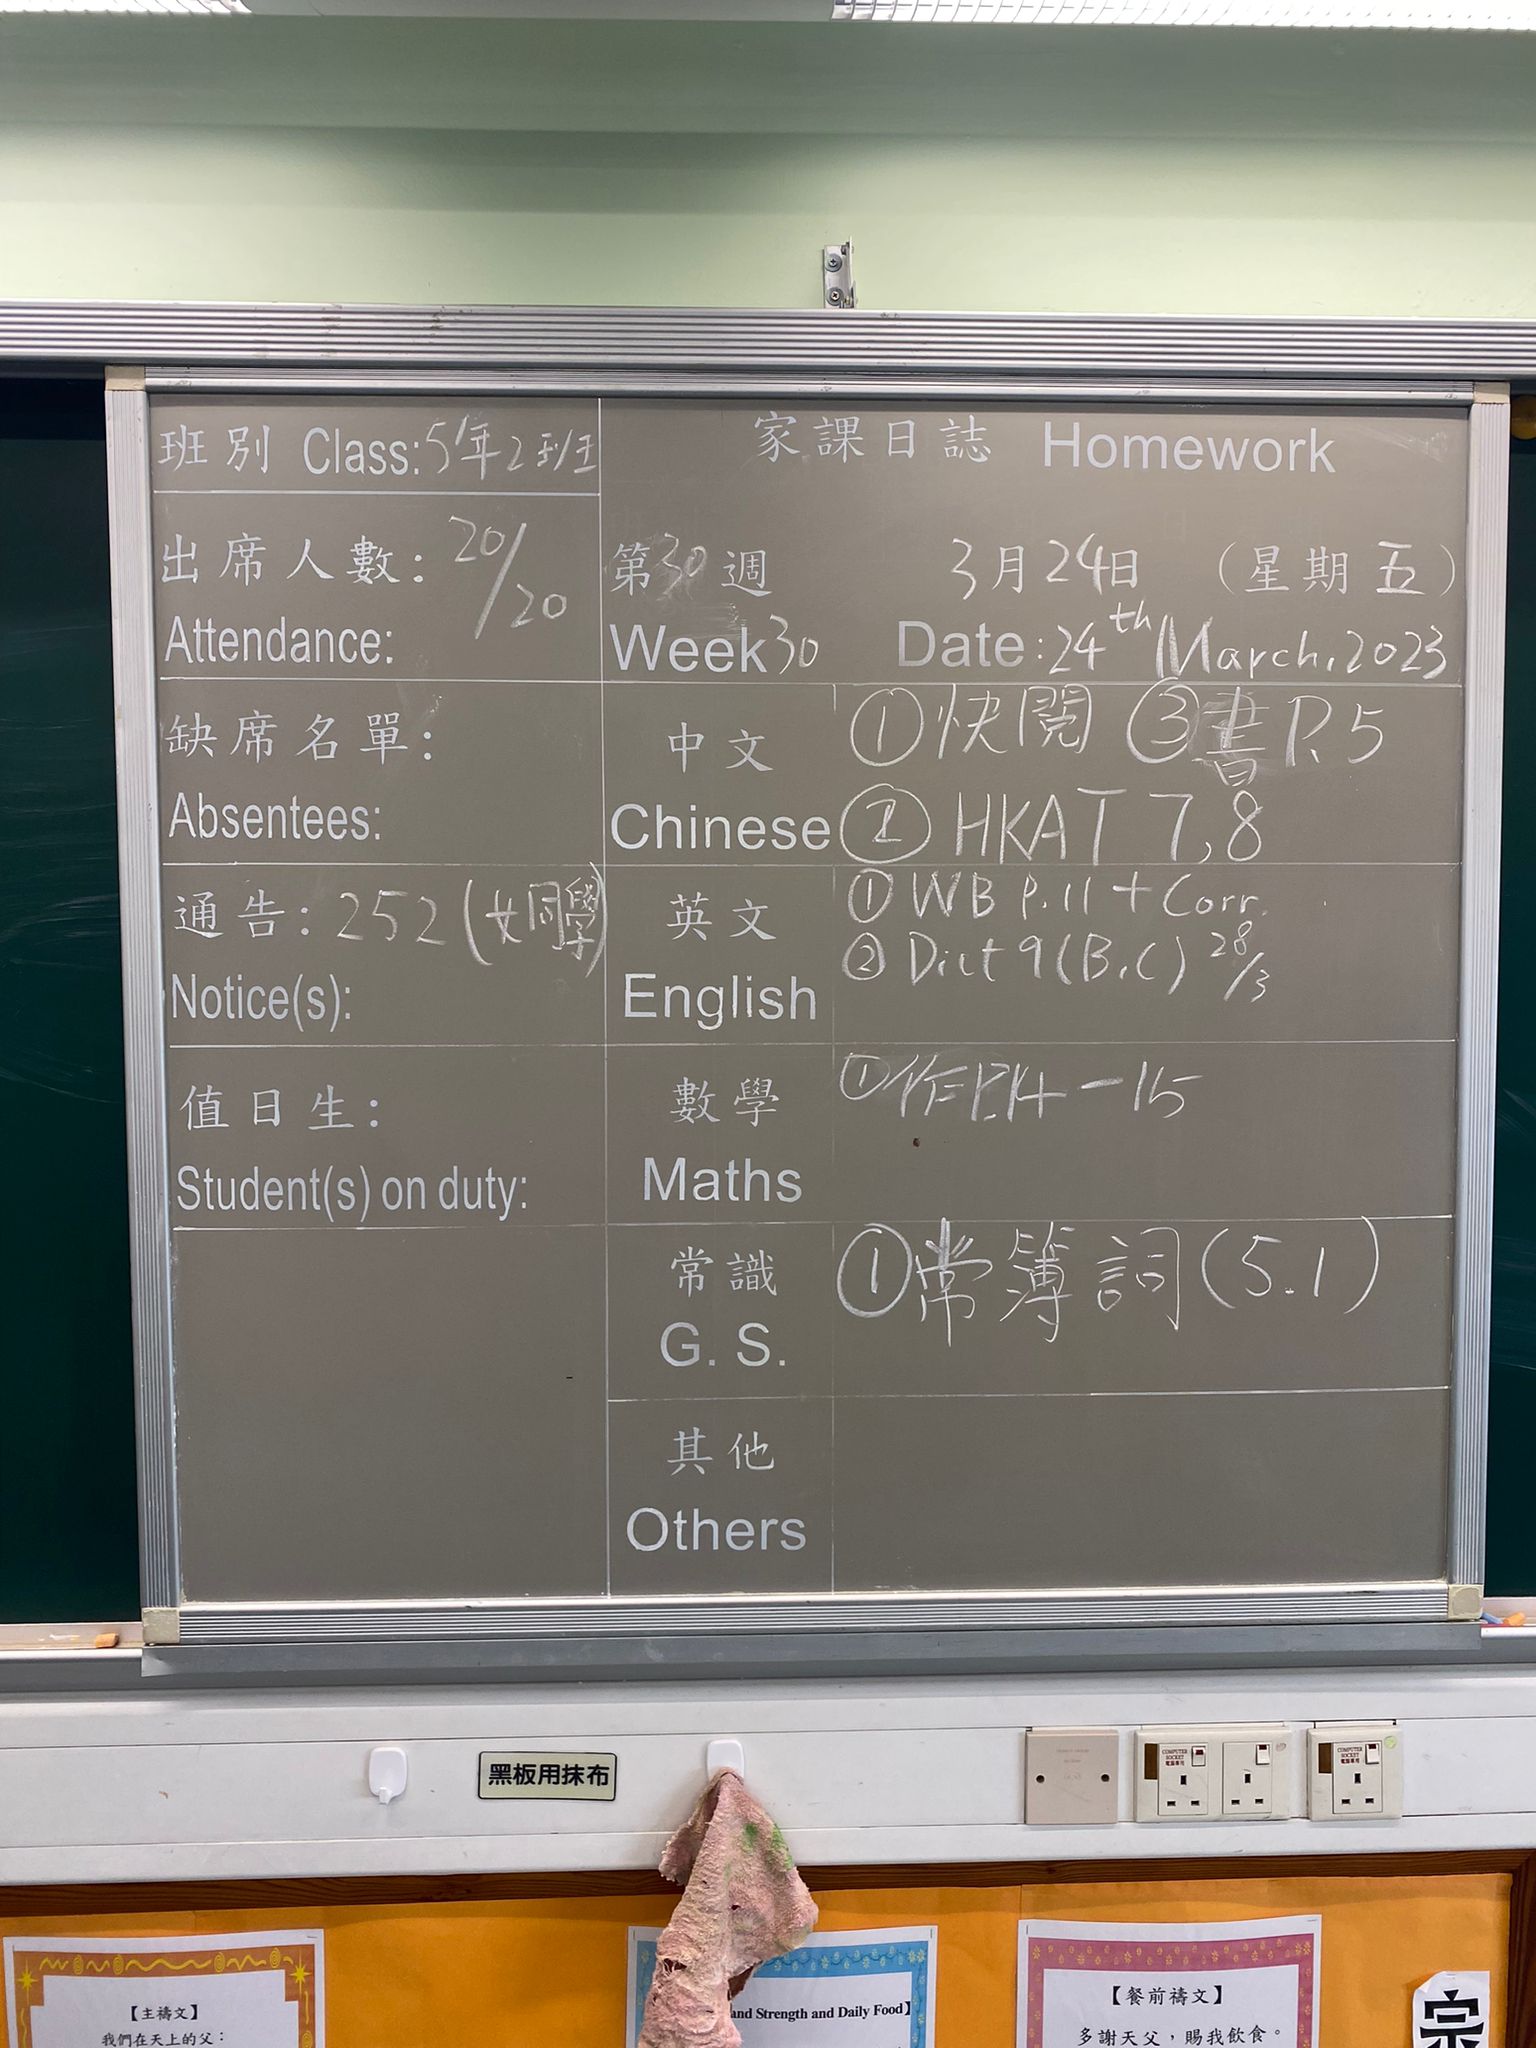 班別 Class: 5年2班
出席人數: 20/20
Attendance:
缺席名單:
Absentees:
通告: 252 (女同學)
Notice(s):
值日生:
Student(s) on duty:
家課日誌 Homework
第30週 3月24日 (星期五)
Week 30 Date: 24th March, 2023
中文 ①快閱 ③書P.5
Chinese ② HKAT 7,8
英文 ① WB P.11 + Corr.
② Dict 9 (B,C) 28/3
English
數學 ①作P.14-15
Maths
常識 ①常簿詞(5.1)
G. S.
其他
Others
黑板用抹布
COMPUTER SOCKET
電腦專用
COMPUTER SOCKET
電腦專用
【主禱文】
我們在天上的父：
and Strength and Daily Food】
【餐前禱文】
多謝天父，賜我飲食。
宗